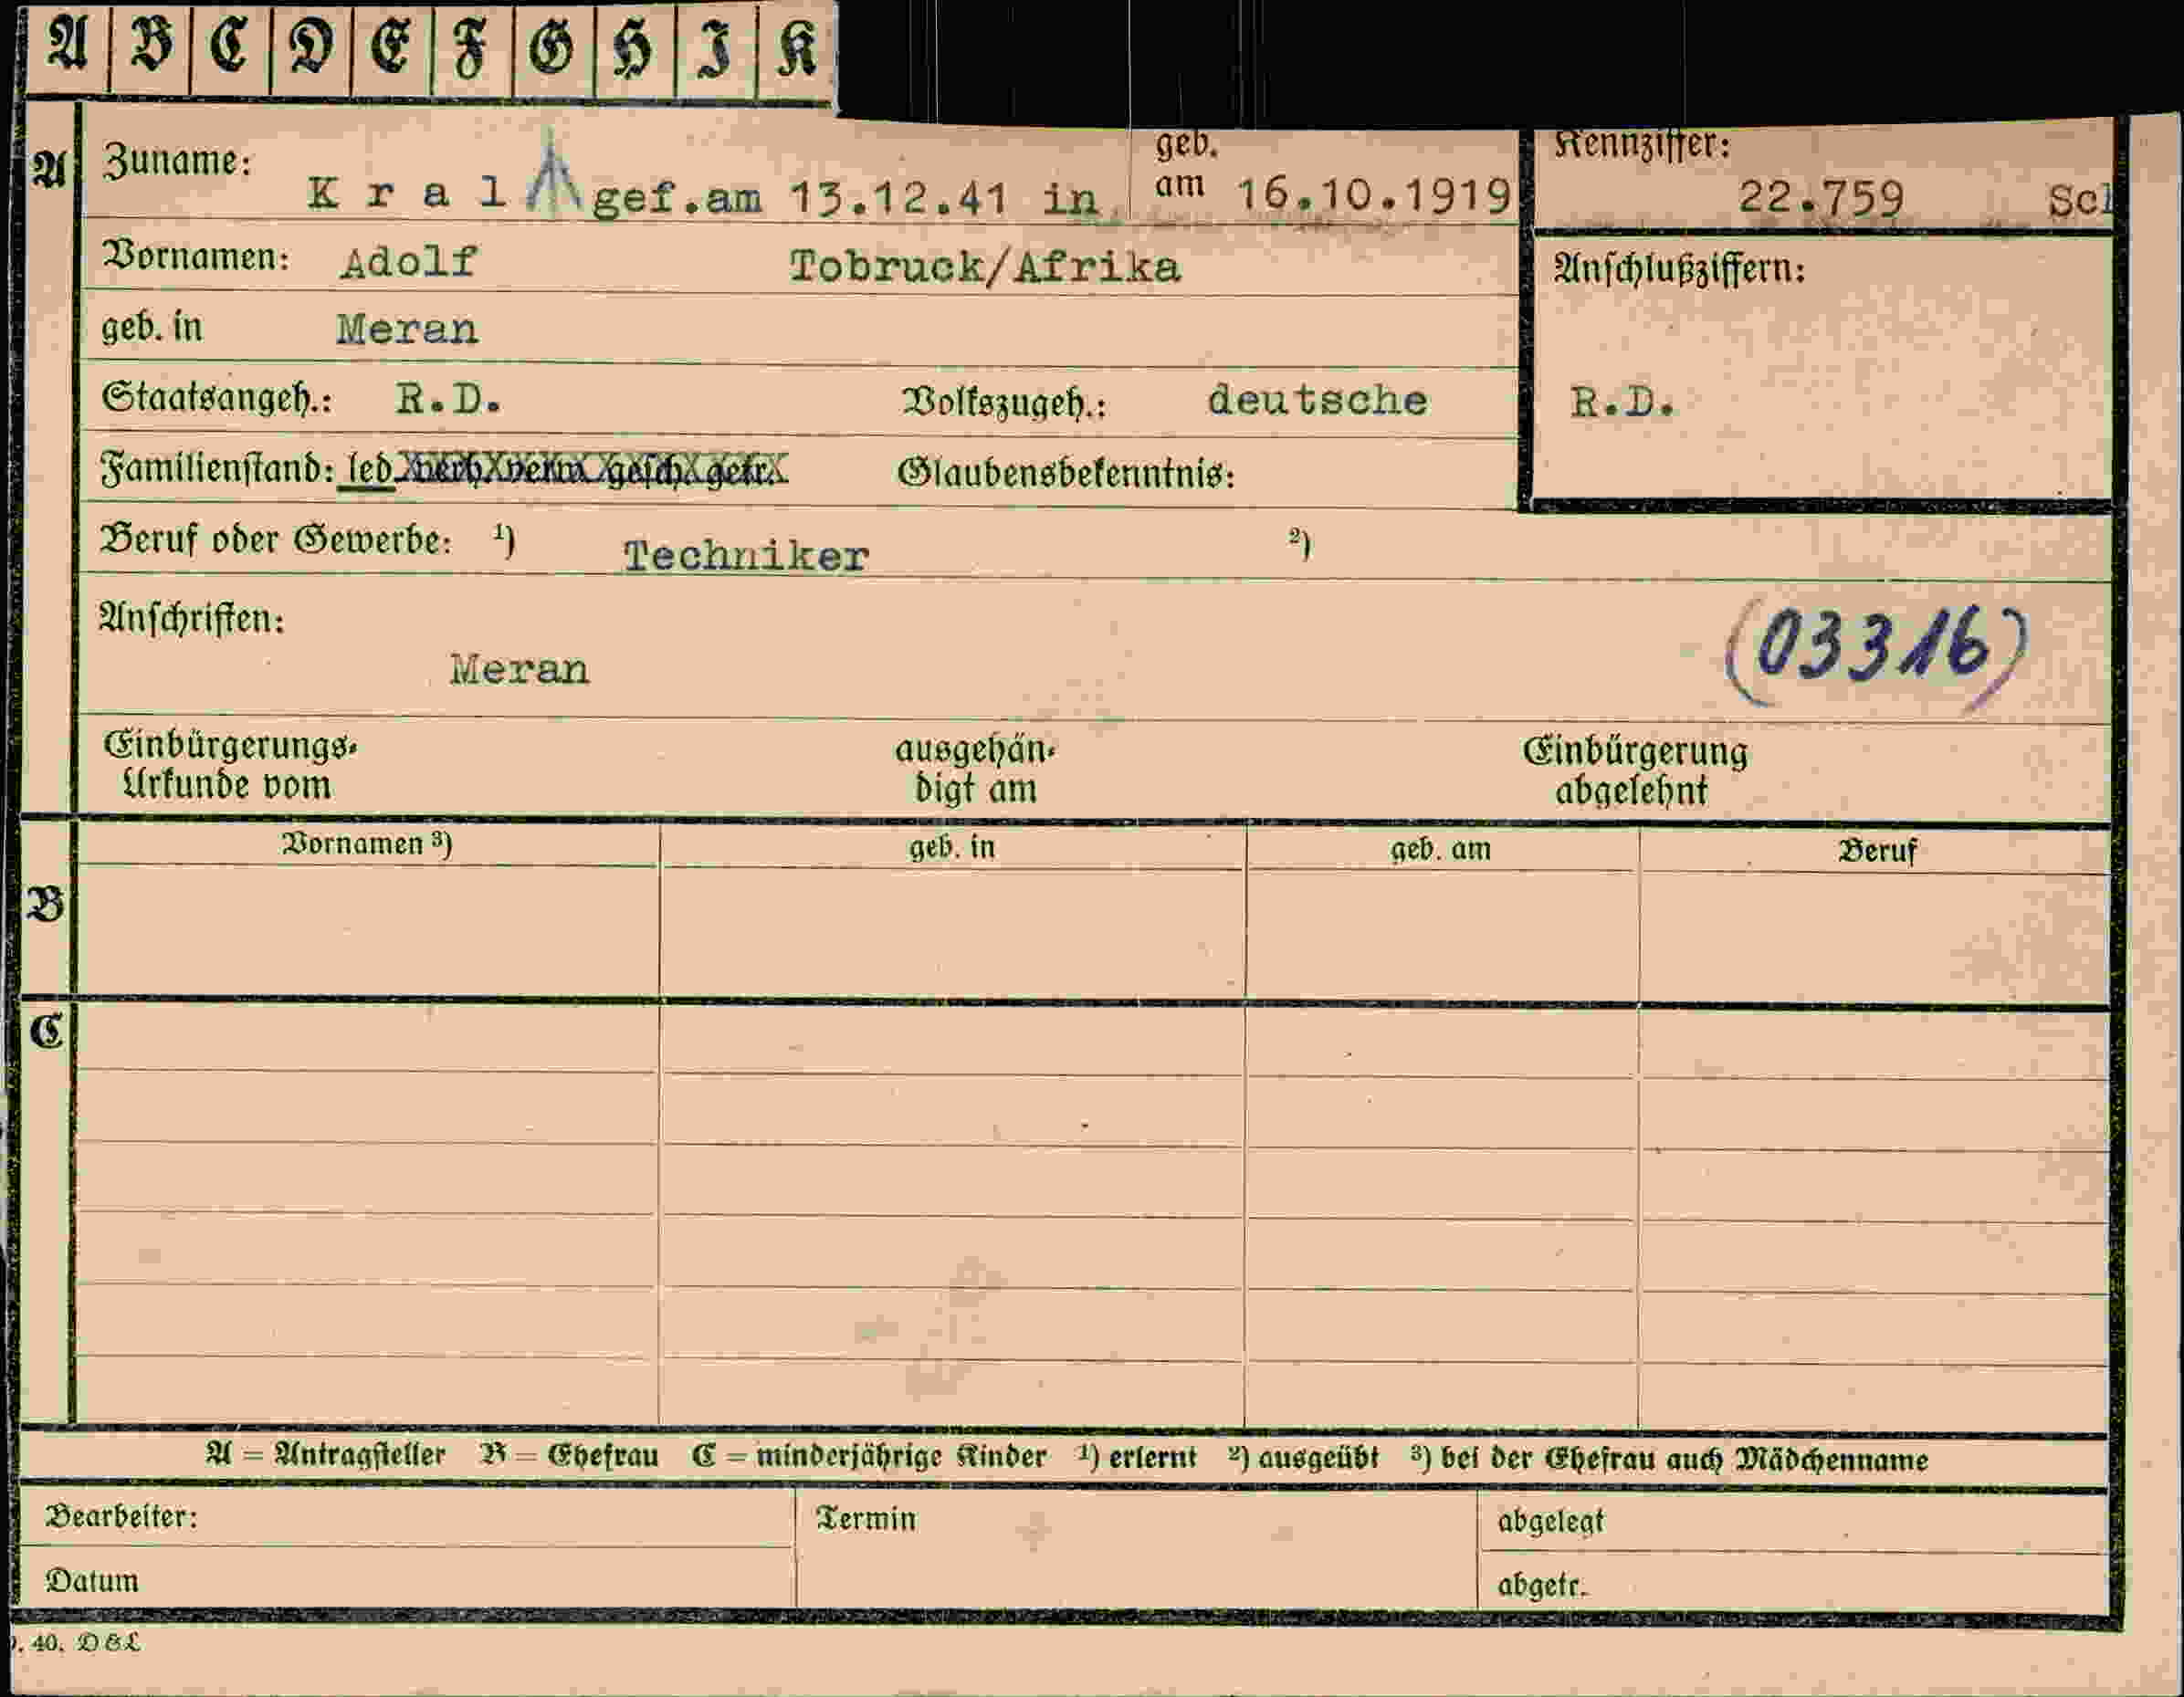 A B C D E F G H I K
A Zuname: Kral gef.am 13.12.41 in geb. am 16.10.1919 Kennziffer: 22.759
Vornamen: Adolf Tobruck/Afrika Anschlußziffern:
geb. in Meran
Staatsangeh.: R.D. Volkszugeh.: deutsche R.D.
Familienstand: led. verh. verw. gesch. getr. Glaubensbekenntnis:
Beruf oder Gewerbe: 1) Techniker 2)
Anschriften: (03316)
Meran
Einbürgerungs- ausgehän- Einbürgerung
Urkunde vom digt am abgelehnt
Vornamen 3) geb. in geb. am Beruf
B
C
A = Antragsteller B = Ehefrau C = minderjährige Kinder 1) erlernt 2) ausgeübt 3) bei der Ehefrau auch Mädchenname
Bearbeiter: Termin abgelegt
Datum abgetr.
. 40.